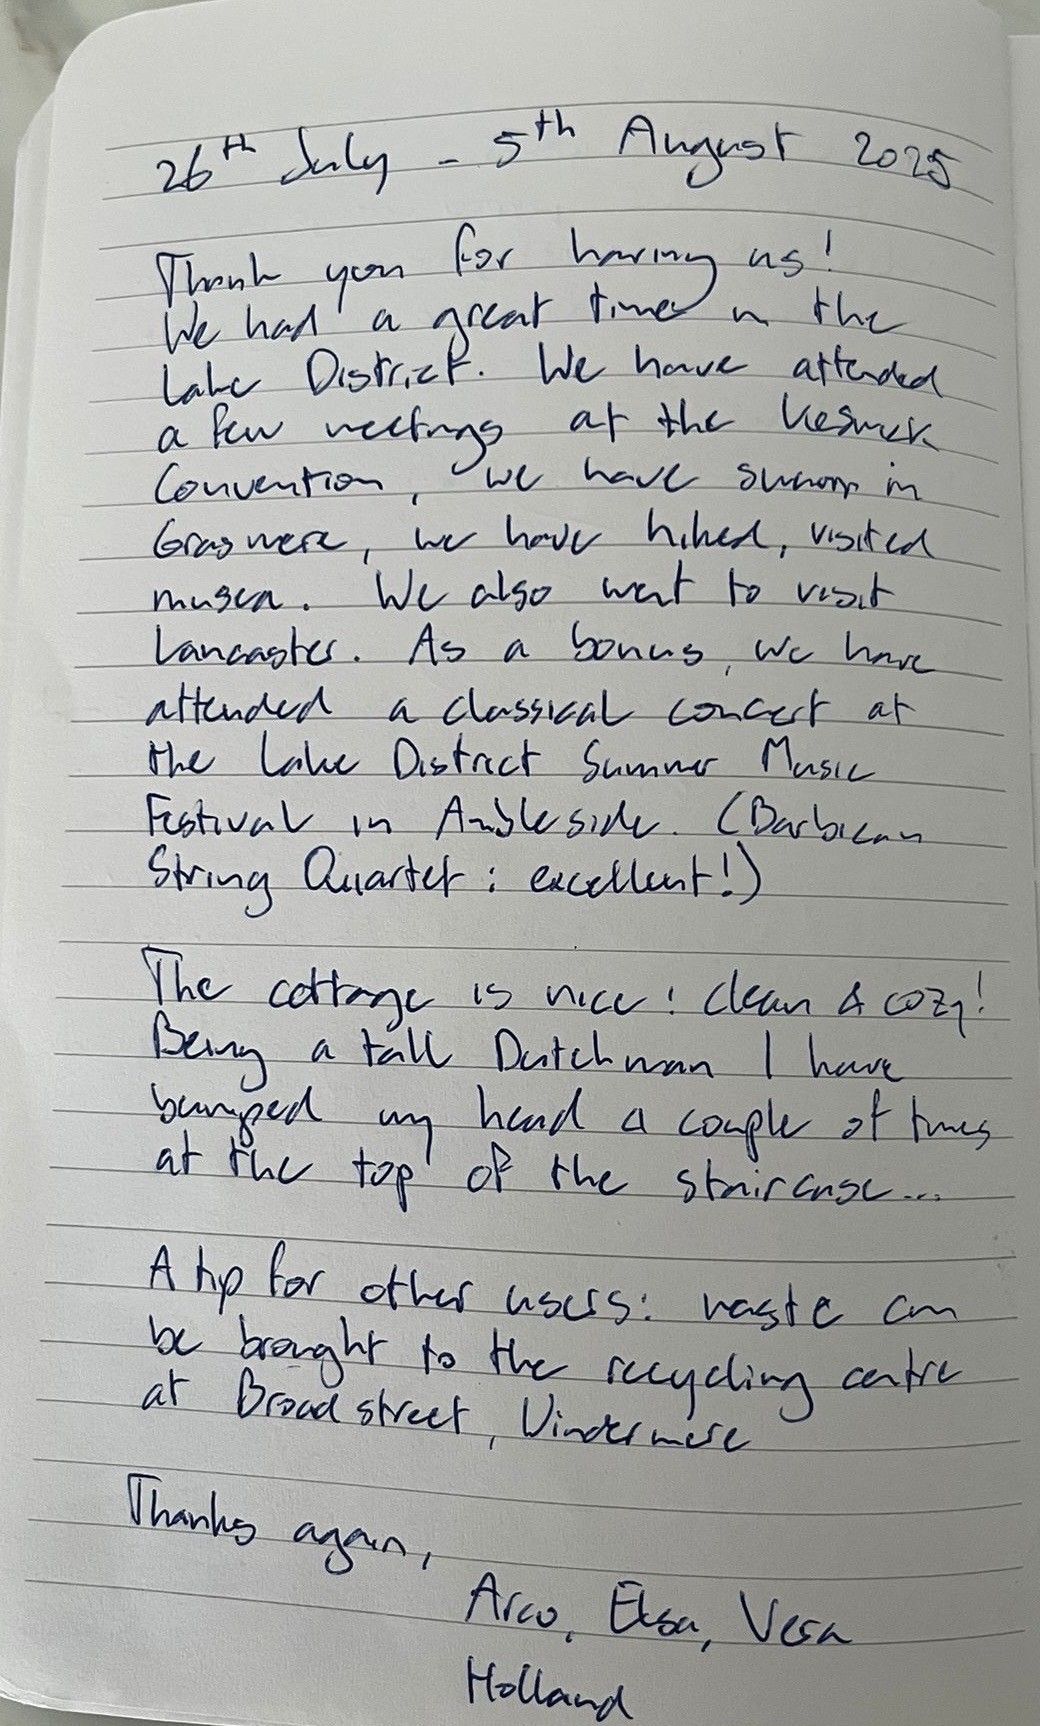 26th July - 5th August 2025
Thank you for having us!
We had a great time in the
Lake District. We have attended
a few meetings at the Keswick
Convention, we have swum in
Grasmere, we have hiked, visited
musea. We also went to visit
Lancaster. As a bonus, we have
attended a classical concert at
the Lake District Summer Music
Festival in Ambleside. (Barbican
String Quartet: excellent!)
The cottage is nice: clean & cozy!
Being a tall Dutchman I have
bumped my head a couple of times
at the top of the staircase...
A tip for other users: waste can
be brought to the recycling centre
at Broadstreet, Windermere
Thanks again,
Arco, Elsa, Vera
Holland